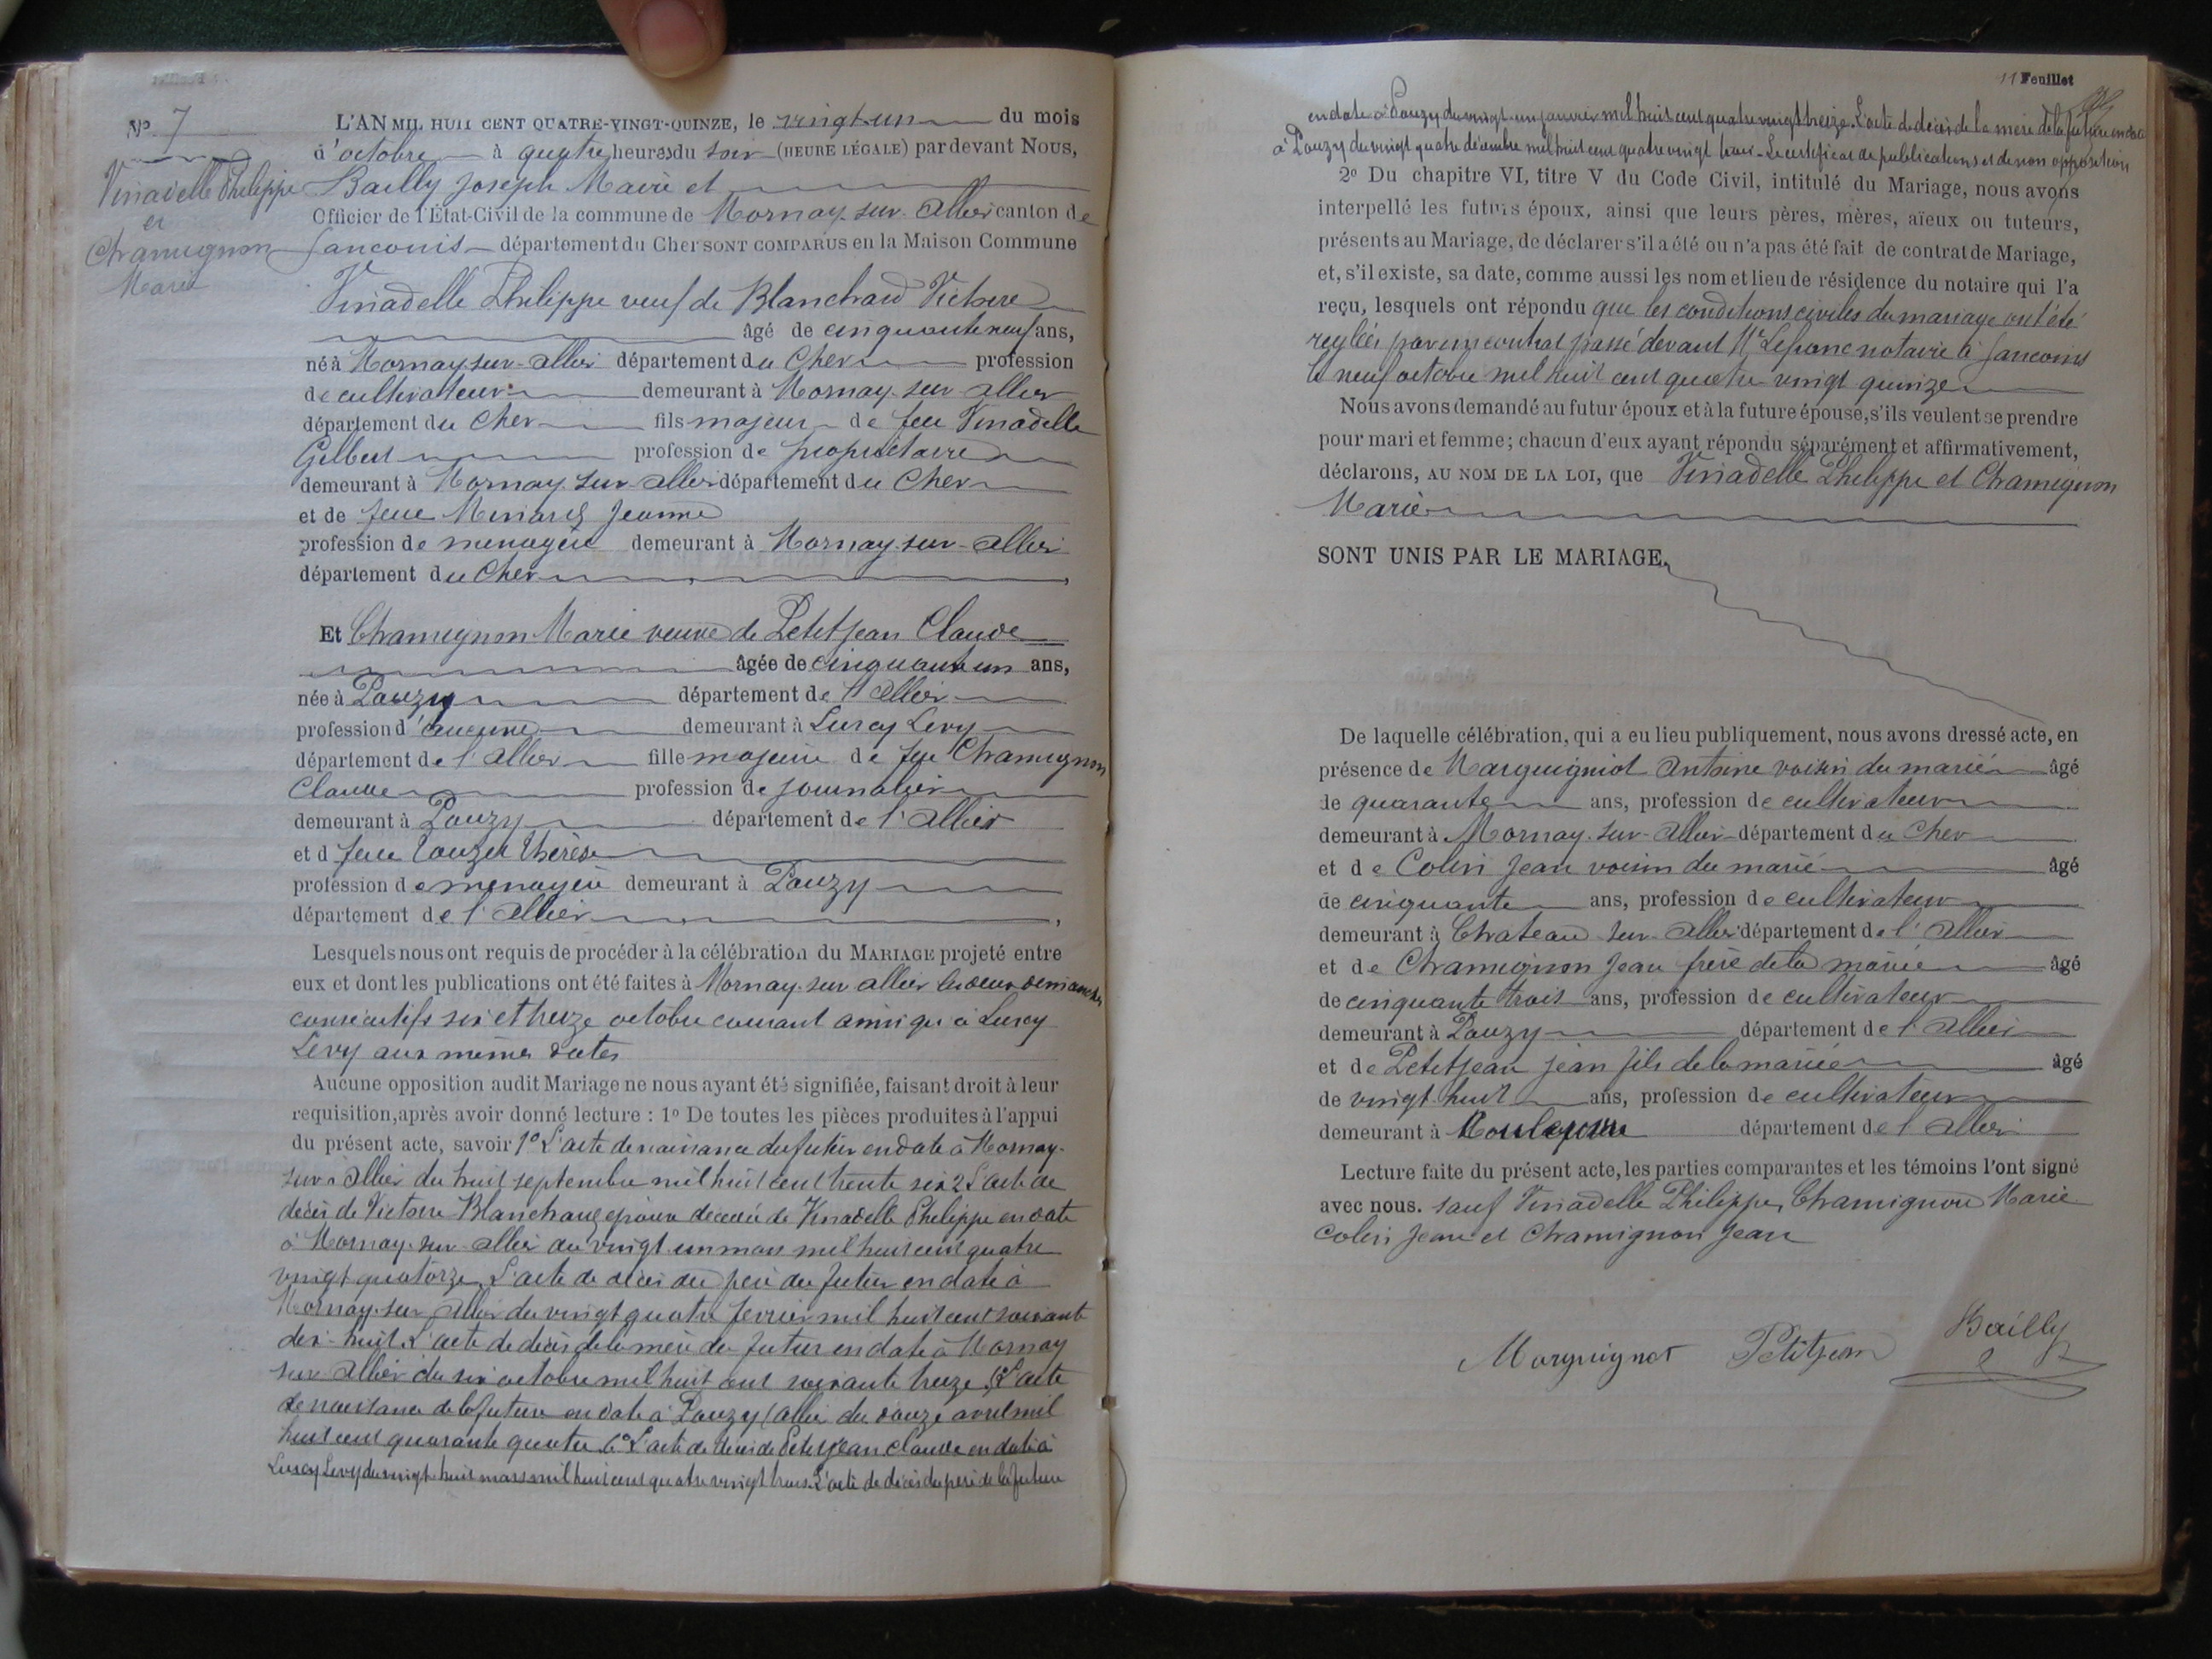 N° 7
Vinadelle Philippe
et
Chamignon
Marie
L'AN MIL HUIT CENT QUATRE-VINGT-QUINZE, le vingt-un du mois
d'octobre à quatre heures du soir (HEURE LÉGALE) par devant Nous,
Bailly Joseph Maire et
Officier de l'État-Civil de la commune de Mornay-sur-Allier canton de
Sancoins département du Cher SONT COMPARUS en la Maison Commune
Vinadelle Philippe veuf de Blanchard Victoire
âgé de cinquante neuf ans,
né à Mornay-sur-allier département du Cher profession
de cultivateur demeurant à Mornay-sur-allier
département du Cher fils majeur de feu Vinadelle
Gilbert profession de propriétaire
demeurant à Mornay-sur-allier département du Cher
et de feue Jeanne
profession de menagère demeurant à Mornay-sur-allier
département du Cher,
Et Chamignon Marie veuve de Petitjean Claude
âgée de cinquante un ans,
née à Pouzy département de l'Allier
profession d'aucune demeurant à Lurcy Levy
département de l'Allier fille majeure de feu Chamignon
Claude profession de journalier
demeurant à Pouzy département de l'Allier
et d feue Thérèse
profession de menagère demeurant à Pouzy
département de l'Allier,
Lesquels nous ont requis de procéder à la célébration du MARIAGE projeté entre
eux et dont les publications ont été faites à Mornay-sur-allier les deux dimanches
consécutifs six et treize octobre courant ainsi qu'à Lurcy
Levy aux mêmes dates
Aucune opposition audit Mariage ne nous ayant été signifiée, faisant droit à leur
requisition, après avoir donné lecture : 1° De toutes les pièces produites à l'appui
du présent acte, savoir 1° L'acte de naissance du futur en date à Mornay-
sur-Allier du huit septembre mil huit cent trente six 2 L'acte de
décès de Victoire Blanchard épouse decedée de Vinadelle Philippe en date
à Mornay-sur-allier du vingt un mars mil huit cent quatre
vingt quatorze, L'acte de décès du père du futur en date à
Mornay-sur-Allier du vingt quatre fevrier mil huit cent soixante
dix-huit. L'acte de décès de la mère du futur en date à Mornay
sur-Allier du six octobre mil huit cent soixante treize. L'acte
de naissance de la future en date à Pouzy (Allier du douze avril mil
huit cent quarante quatre 6° L'acte de décès de Petitjean Claude en date à
Lurcy Levy du vingt huit mars mil huit cent quatre vingt trois. L'acte de décès du père de la future
11 Feuillet
en date à Pouzy du vingt un janvier mil huit cent quatre vingt treize. L'acte de décès de la mère de la future en date
à Pouzy du vingt quatre décembre mil huit cent quatre vingt trois - Le certificat de publications et de non opposition
2° Du chapitre VI, titre V du Code Civil, intitulé du Mariage, nous avons
interpellé les futurs époux, ainsi que leurs pères, mères, aïeux ou tuteurs,
présents au Mariage, de déclarer s'il a été ou n'a pas été fait de contrat de Mariage,
et, s'il existe, sa date, comme aussi les nom et lieu de résidence du notaire qui l'a
reçu, lesquels ont répondu que les conditions civiles du mariage ont été
reglées par un contrat passé devant Me notaire à Sancoins
le neuf octobre mil huit cent quatre vingt quinze
Nous avons demandé au futur époux et à la future épouse, s'ils veulent se prendre
pour mari et femme; chacun d'eux ayant répondu séparément et affirmativement,
déclarons, AU NOM DE LA LOI, que Vinadelle Philippe et Chamignon
Marie
SONT UNIS PAR LE MARIAGE,
De laquelle célébration, qui a eu lieu publiquement, nous avons dressé acte, en
présence de Marguigniot Antoine voisin du marié âgé
de quarante ans, profession de cultivateur
demeurant à Mornay-sur-Allier département du Cher
et de Colin Jean voisin du marié âgé
de cinquante ans, profession de cultivateur
demeurant à Chateau-sur-Allier département de l'Allier
et de Chamignon Jean frère de la mariée âgé
de cinquante trois ans, profession de cultivateur
demeurant à Pouzy département de l'Allier
et de Petitjean Jean fils de la mariée âgé
de vingt huit ans, profession de cultivateur
demeurant à département de l'Allier
Lecture faite du présent acte, les parties comparantes et les témoins l'ont signé
avec nous. sauf Vinadelle Philippe, Chamignon Marie
Colin Jean et Chamignon Jean
Marguignot Petitjean Bailly